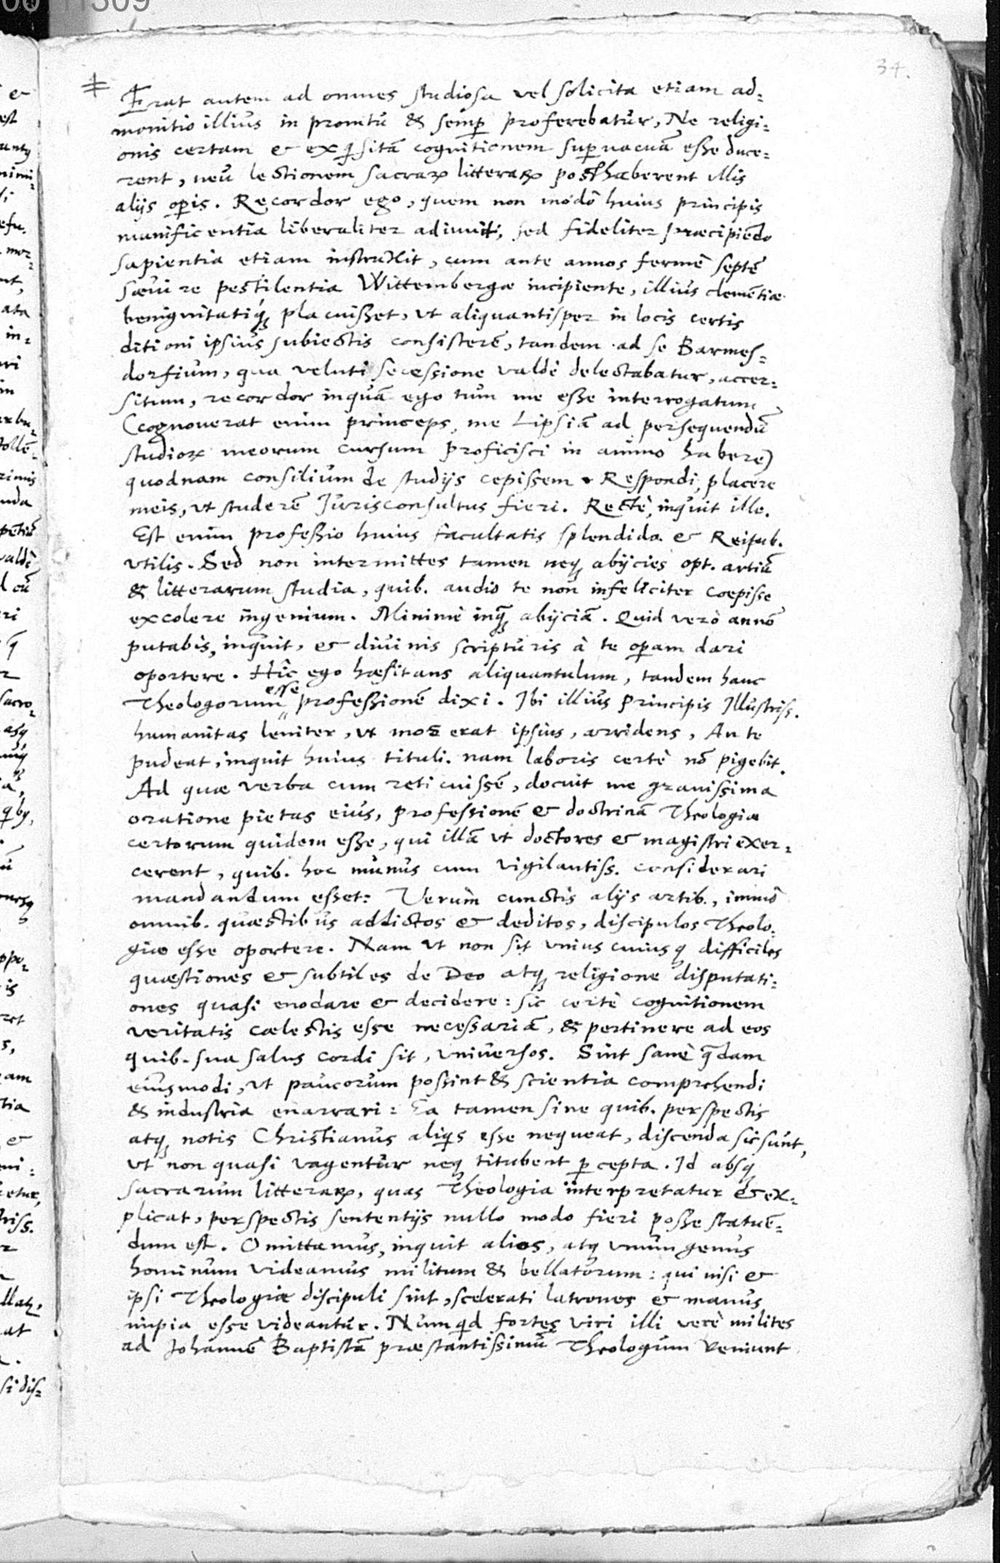 34.
Erat autem ad omnes studiosa vel solicita etiam ad-
monitio illius in promtu & semp proferebatur, Ne religi-
onis certam & exqisitā cognitionem supervacuā esse duce-
rent, neu lectionem sacraꝝ litteraꝝ posthaberent illis
alijs opis. Recordor ego, quem non modò huius principis
munificentia liberaliter adiuuit, sed fideliter præcipiēdo
sapientia etiam instruxit, cum ante annos fermè septē
sæuire pestilentia Wittembergæ incipiente, illius clemētiæ
benignitatiq́ placuisset, vt aliquantisper in locis certis
ditioni ipsius subiectis consisterē, tandem ad se Barmes-
dorfium, qua veluti secessione valdè delectabatur, accer-
situm, recordor inquā ego tum me esse interrogatum
(cognouerat enim princeps, me Lipsiā ad persequendū
studioꝝ meorum cursum proficisci in animo habere)
quodnam consilium de studijs cepissem. Respondi, placere
meis, vt studerē Jurisconsultus fieri. Rectè, inquit ille.
Est enim professio huius facultatis splendida & Reipub.
vtilis. Sed non intermittes tamen neq́ abijcies opt. artiū
& litterarum studia, quib. audio te non infeliciter coepisse
excolere ingenium. Minimè inq́ abijciā. Quid verò annō
putabis, inquit, & diuinis scripturis à te opam dari
oportere. Hîc ego hæsitans aliquantulum, tandem hanc
Theologorum esse professionē dixi. Ibi illius Principis Illustriss.
humanitas leniter, vt mos erat ipsius, arridens, An te
pudeat, inquit huius tituli. nam laboris certè nō pigebit.
Ad quæ verba cum reticuissē, docuit me grauissima
oratione pietas eius, professionē & doctrinā Theologiæ
certorum quidem esse, qui illā vt doctores & magistri exer-
cerent, quib. hoc munus cum vigilantiss. considerari
mandandum esset: Verùm cunctis alijs artib., immò
omnib. quæstibus addictos & deditos, discipulos Theolo-
giæ esse oportere. Nam vt non sit vnius cuiusq́ difficiles
quæstiones & subtiles de Deo atq́ religione disputati-
ones quasi enodare & decidere: sic certè cognitionem
veritatis cælestis esse necessariā, & pertinere ad eos
quib. sua salus cordi sit, vniversos. Sint sanè q̄dam
eiusmodi, vt paucorum possint & scientia comprehendi
& industria enarrari: Ea tamen sine quib. perspectis
atq́ notis Christianus aliqis esse nequeat, discenda sic sunt,
vt non quasi vagentur neq́ titubent pcepta. Id absq́
sacrarum litteraꝝ, quas Theologia interpretatur & ex-
plicat, perspectis sententijs nullo modo fieri posse statuē-
dum est. Omittamus, inquit alios, atq́ vnum genus
hominum videamus militum & bellatorum: qui nisi &
ipsi Theologiæ discipuli sint, scelerati latrones & manus
impia esse videantur. Numqid fortes viri illi verè milites
ad Johannē Baptistā præstantissimū Theologum veniunt